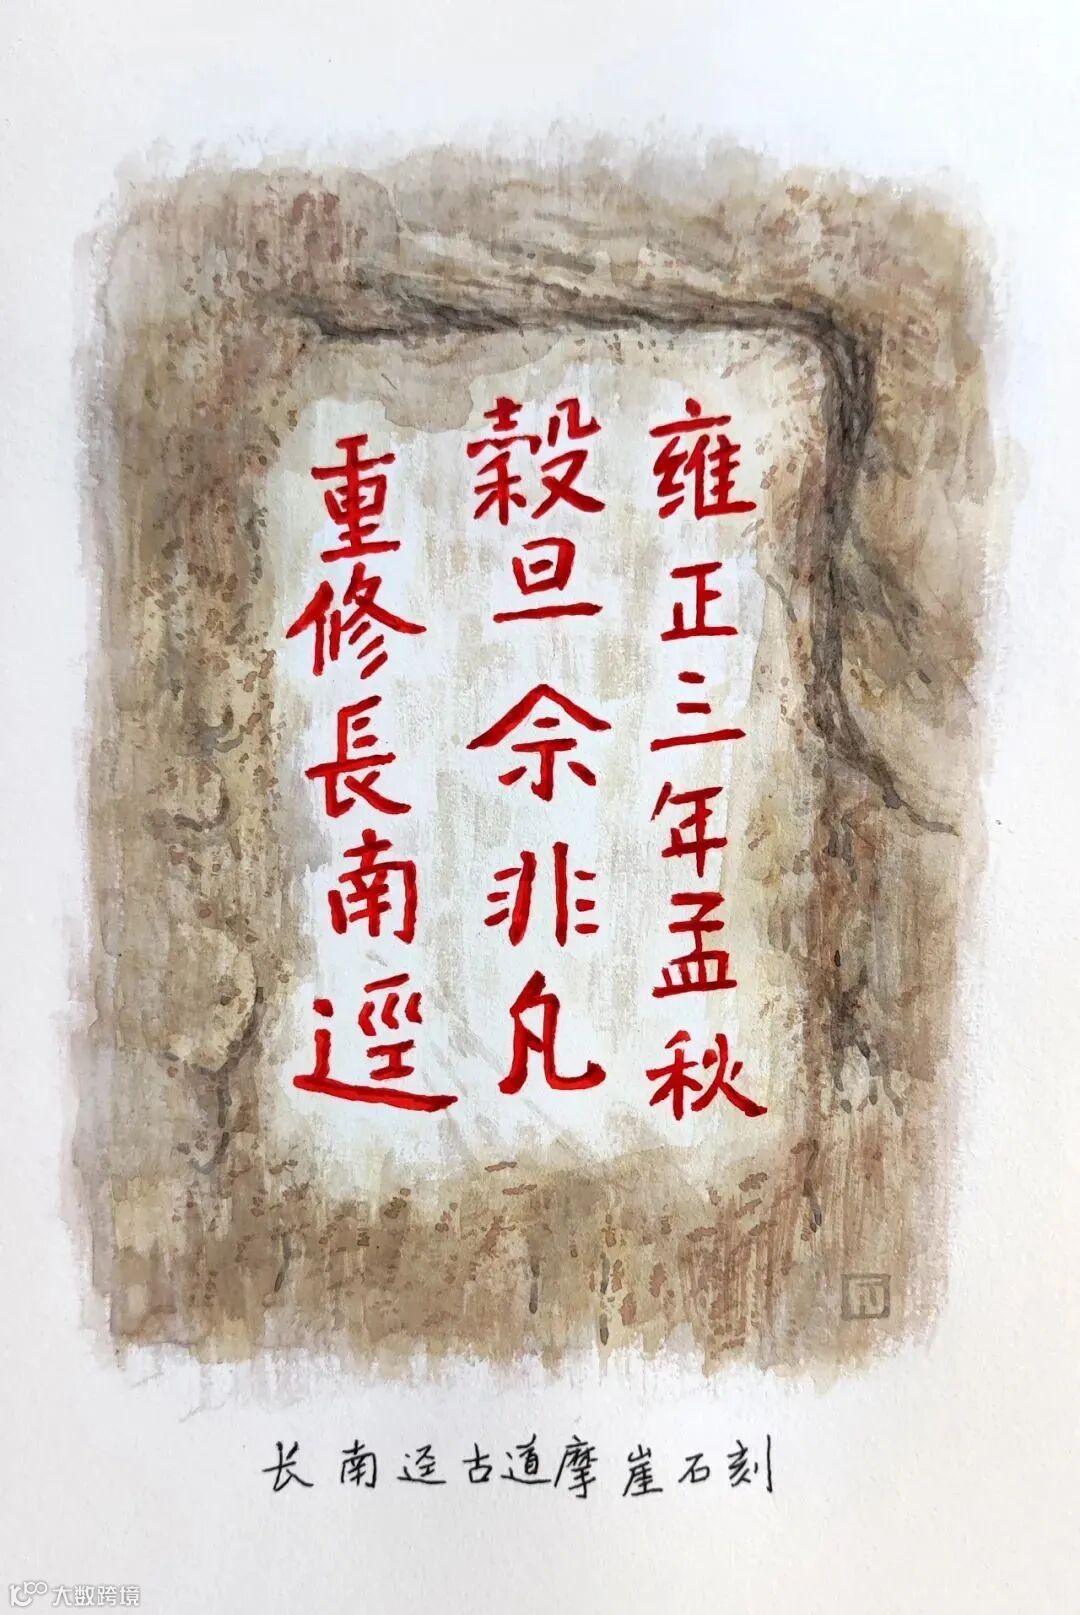 雍正三年孟秋
穀旦佘非凡
重修長南逕
长南迳古道摩崖石刻
大数跨境